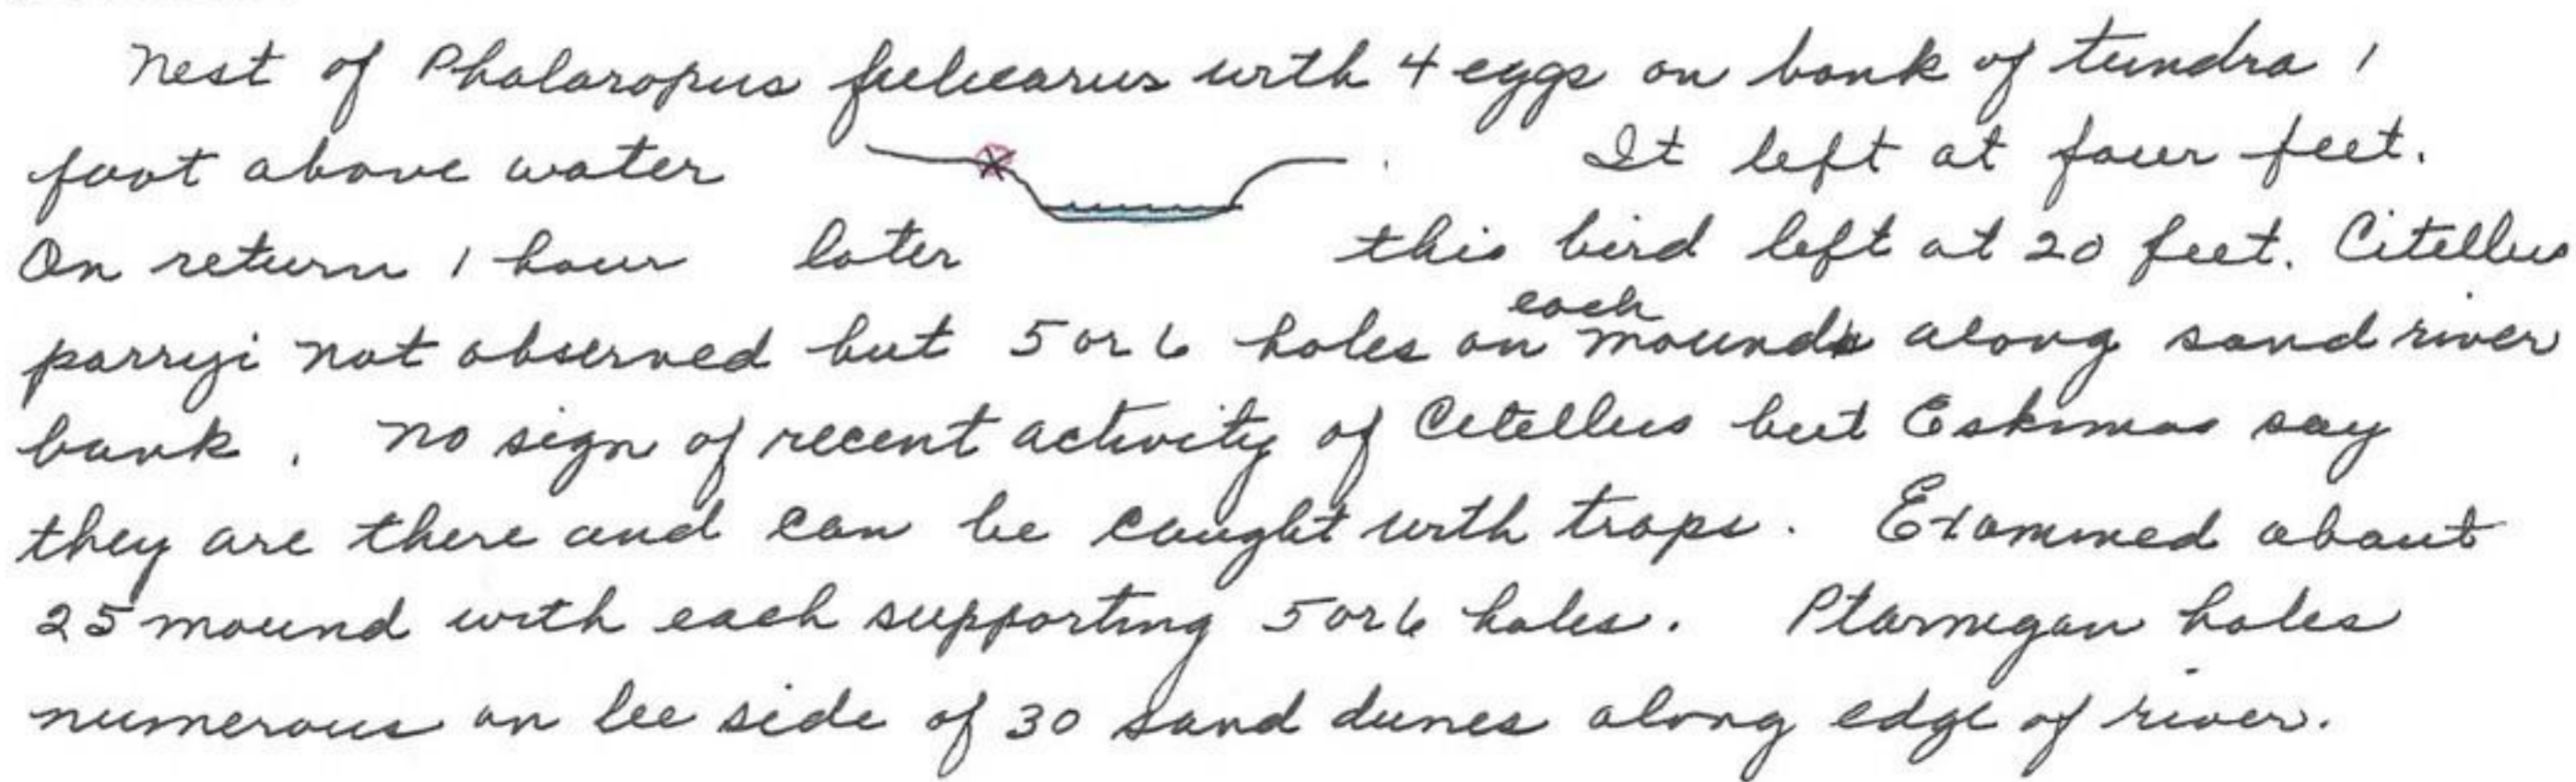 Nest of Phalaropus fulicarus with 4 eggs on bank of tundra 1
foot above water It left at four feet.
On return 1 hour later this bird left at 20 feet. Citellus
parryi not observed but 5 or 6 holes on each mound along sand river
bank. No sign of recent activity of Citellus but Eskimos say
they are there and can be caught with traps. Examined about
25 mound with each supporting 5 or 6 holes. Ptarmigan holes
numerous on lee side of 30 sand dunes along edge of river.